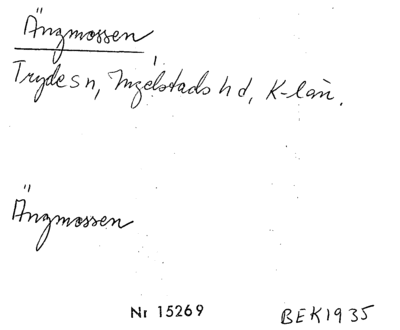 Ängmossen
Tryde sn, Ingelstads hd, K-län.
Ängmossen
Nr 15269 BEK1935